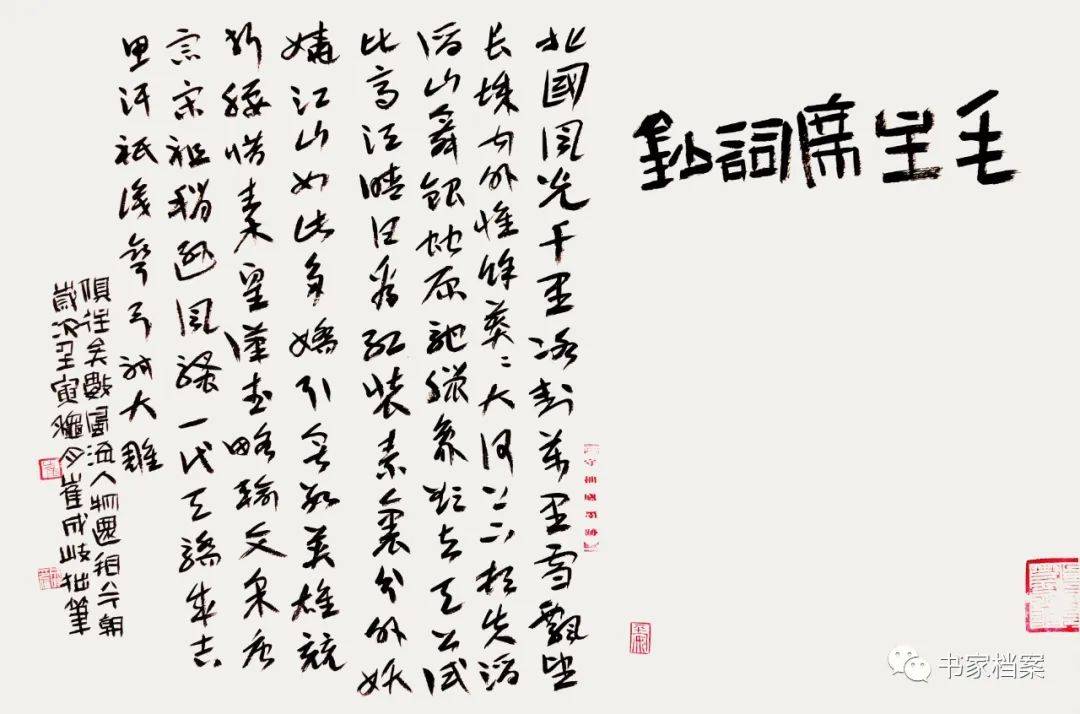 毛主席詞鈔
北國風光千里冰封萬里雪飄望
長城内外惟餘莽〻大河上下頓失滔
滔山舞銀蛇原馳蠟象欲與天公試
比高須晴日看紅裝素裹分外妖
嬈江山如此多嬌引無數英雄競
折腰惜秦皇漢武略輸文采唐
宗宋祖稍遜風騷一代天驕成吉
思汗祇識彎弓射大雕
俱往矣數風流人物還看今朝
歲次壬寅龝月崔成岐拙筆
书家档案